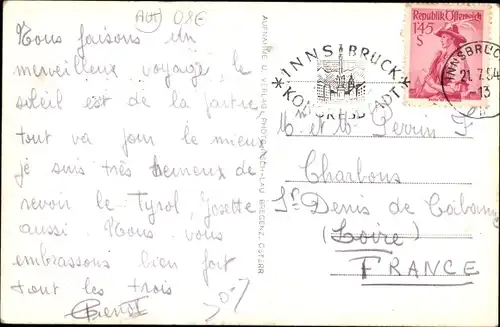 Aut 08E
Nous faisons un
merveilleux voyage, le
soleil est de la partie
tout va pour le mieux
je suis très heureux de
revoir le Tyrol, Josette
aussi. Nous vous
embrassons bien fort
tout les trois
AUFNAHME U. VERLAG PHOTO BREGENZ, ÖSTERR.
INNSBRUCK
KONGRESSTADT
Republik Österreich
1.45
S
INNSBRUCK
21.7.54
13
M. et Mme Perrin F
Charbons
St Denis de Cabanne
(Loire)
FRANCE